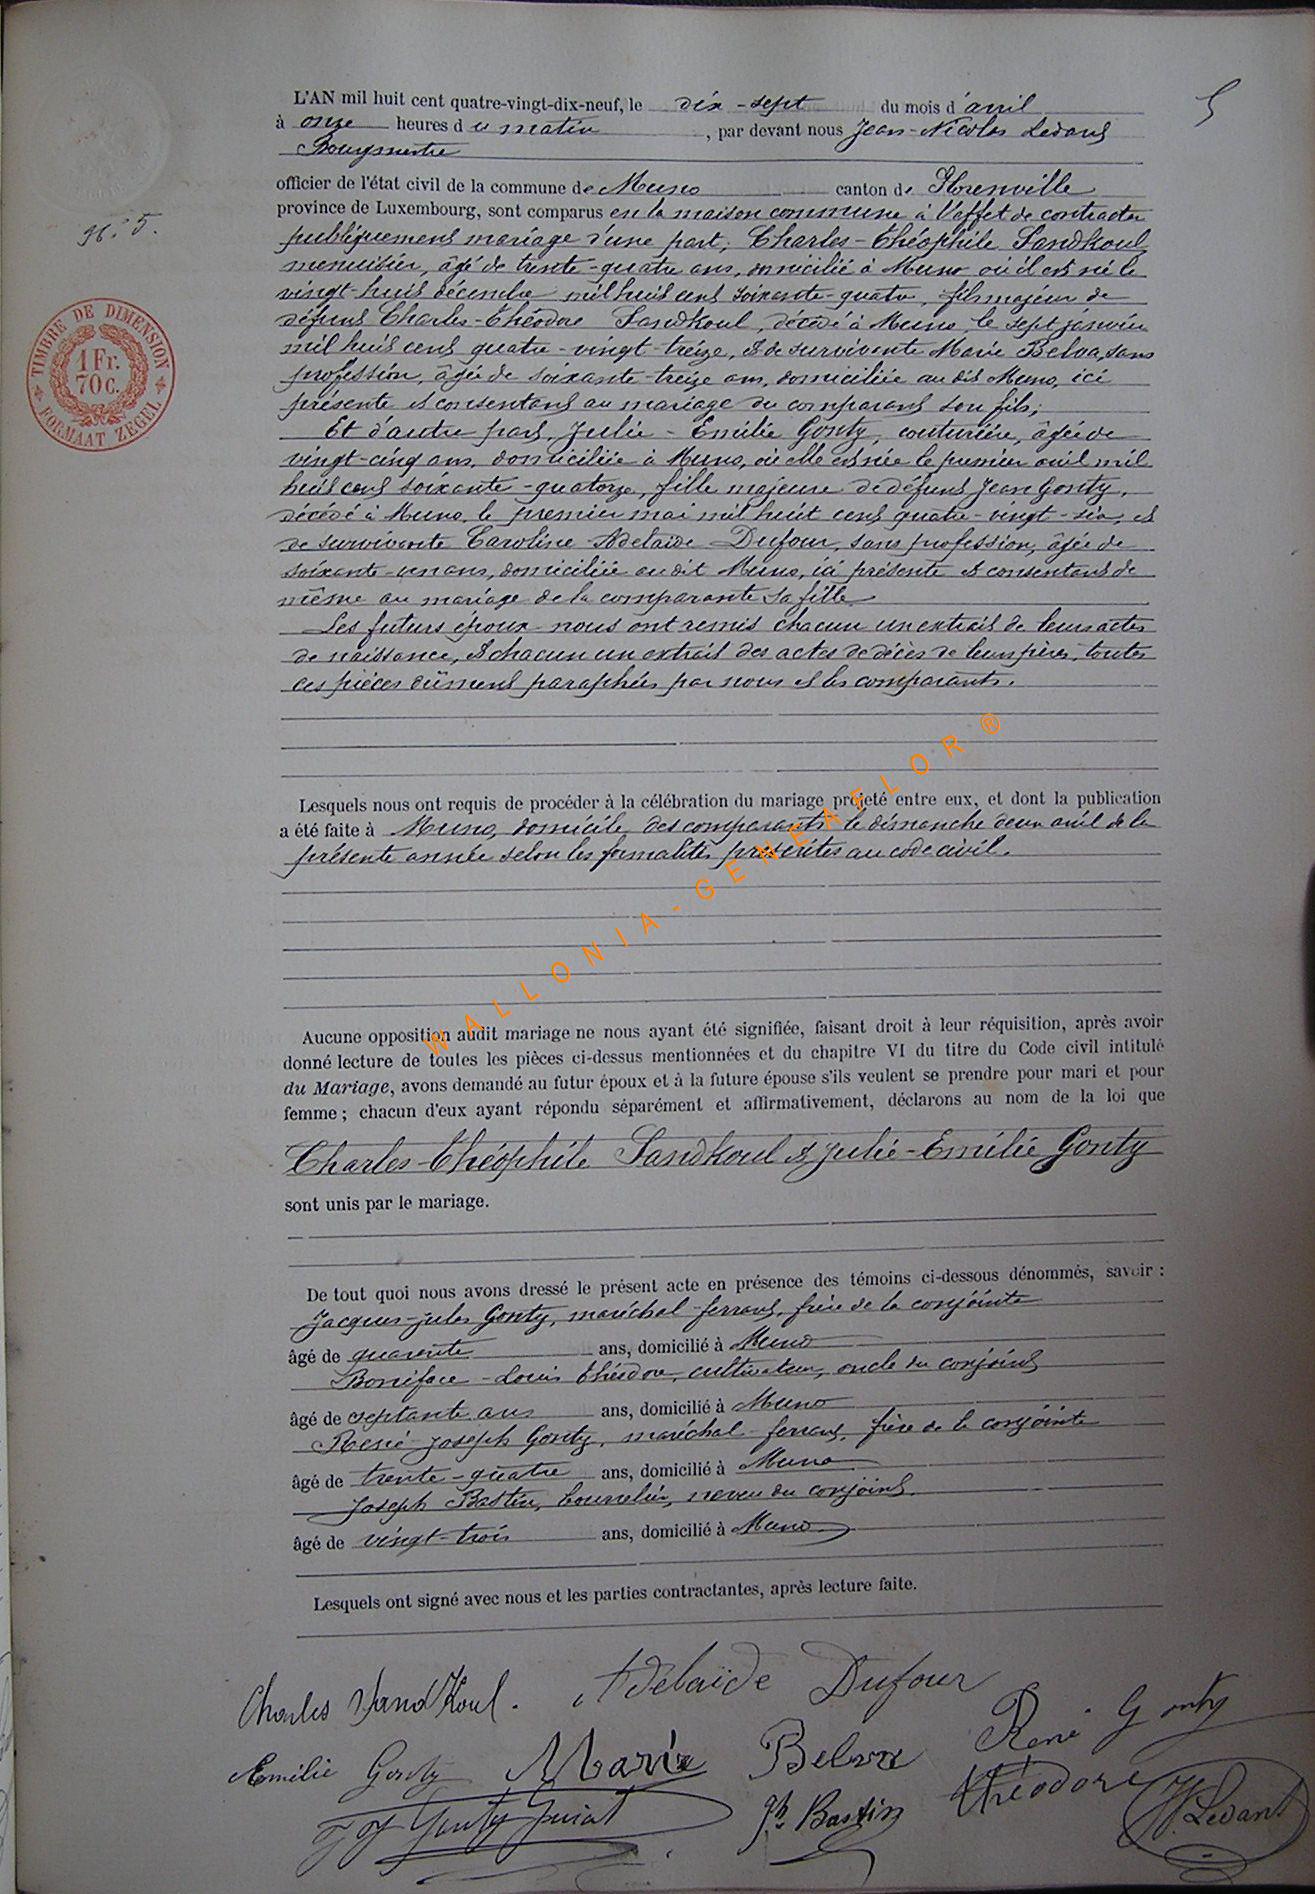 L'AN mil huit cent quatre-vingt-dix-neuf, le dix-sept du mois d'avril
5
à onze heures du matin, par devant nous Jean-Nicolas Ledant
Bourgmestre
officier de l'état civil de la commune de Muno canton de Florenville
province de Luxembourg, sont comparus en la maison commune à l'effet de contracter
N° 5.
publiquement mariage d'une part, Charles-Théophile Sandkoul,
menuisier, âgé de trente-quatre ans, domicilié à Muno où il est né le
vingt-huit décembre mil huit cent soixante-quatre, fils majeur de
défunt Charles-Théodore Sandkoul, décédé à Muno, le sept janvier
mil huit cent quatre-vingt-treize, & de survivante Marie Belva, sans
profession, âgée de soixante-treize ans, domiciliée au dit Muno, ici
présente et consentant au mariage du comparant son fils;
TIMBRE DE DIMENSION
1 Fr.
70 C.
FORMAAT ZEGEL
Et d'autre part, Julie-Emilie Gonty, couturière, âgée de
vingt-cinq ans, domiciliée à Muno, où elle est née le premier avril mil
huit cent soixante-quatorze, fille majeure de défunt Jean Gonty,
décédé à Muno, le premier mai mil huit cent quatre-vingt-six, et
de survivante Caroline-Adelaïde Dufour, sans profession, âgée de
soixante-un ans, domiciliée audit Muno, ici présente et consentant de
même au mariage de la comparante sa fille.
Les futurs époux nous ont remis chacun un extrait de leurs actes
de naissance, & chacun un extrait des actes de décès de leurs pères, toutes
ces pièces dûment paraphées par nous et les comparants.
Lesquels nous ont requis de procéder à la célébration du mariage projeté entre eux, et dont la publication
a été faite à Muno, domicile des comparants le dimanche deux avril de la
présente année selon les formalités prescrites au code civil.
WALLONIA-GENEAFLOR®
Aucune opposition audit mariage ne nous ayant été signifiée, faisant droit à leur réquisition, après avoir
donné lecture de toutes les pièces ci-dessus mentionnées et du chapitre VI du titre du Code civil intitulé
du Mariage, avons demandé au futur époux et à la future épouse s'ils veulent se prendre pour mari et pour
femme ; chacun d'eux ayant répondu séparément et affirmativement, déclarons au nom de la loi que
Charles-Théophile Sandkoul & Julie-Emilie Gonty
sont unis par le mariage.
De tout quoi nous avons dressé le présent acte en présence des témoins ci-dessous dénommés, savoir :
Jacques-Jules Gonty, maréchal-ferrant, frère de la conjointe
âgé de quarante ans, domicilié à Muno
Boniface-Louis Théodore, cultivateur, oncle du conjoint
âgé de septante ans ans, domicilié à Muno
René Joseph Gonty, maréchal-ferrant, frère de la conjointe
âgé de trente-quatre ans, domicilié à Muno
Joseph Bastin, bourrelier, neveu du conjoint.
âgé de vingt-trois ans, domicilié à Muno
Lesquels ont signé avec nous et les parties contractantes, après lecture faite.
Charles Sandkoul. Adelaïde Dufour
René Gonty
Emilie Gonty Marie Belva
Théodore
JJ Gonty Jh Bastin JN. Ledant